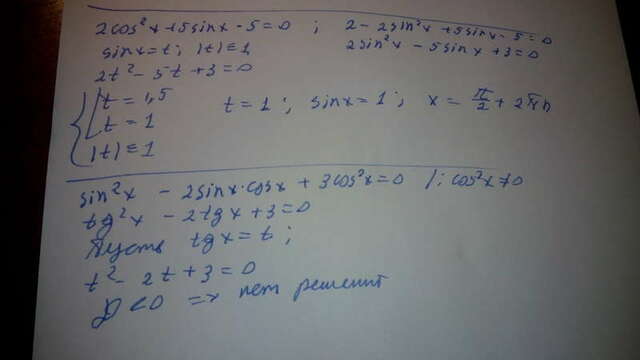 2cos²x + 5sinx - 5 = 0 ; 2 - 2sin²x + 5sinx - 5 = 0
sinx = t ; |t| ≤ 1 2sin²x - 5sinx + 3 = 0
2t² - 5t + 3 = 0
t = 1,5
t = 1 t = 1 ; sinx = 1 ; x = π/2 + 2πn
|t| ≤ 1
sin²x - 2sinx·cosx + 3cos²x = 0 /: cos²x ≠ 0
tg²x - 2tgx + 3 = 0
Пусть tgx = t ;
t² - 2t + 3 = 0
D < 0 => нет решений